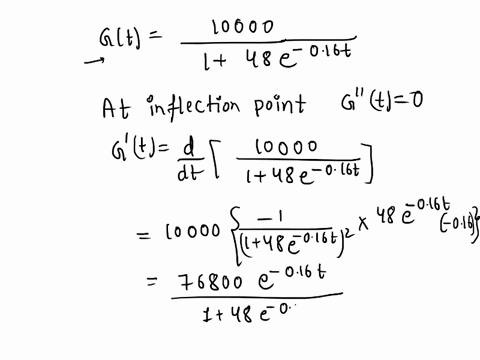 G(t) = 10000 / 1 + 48e^-0.16t
At inflection point G''(t)=0
G'(t) = d/dt [ 10000 / 1+48e^-0.16t ]
= 10000 { -1 / (1+48e^-0.16t)^2 × 48e^-0.16t (-0.16) }
= 76800 e^-0.16t / 1+48e^-0..